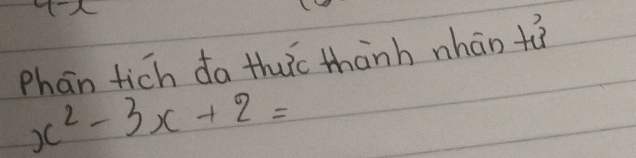 4-x
Phân tích đa thức thành nhân tử
x² - 3x + 2 =